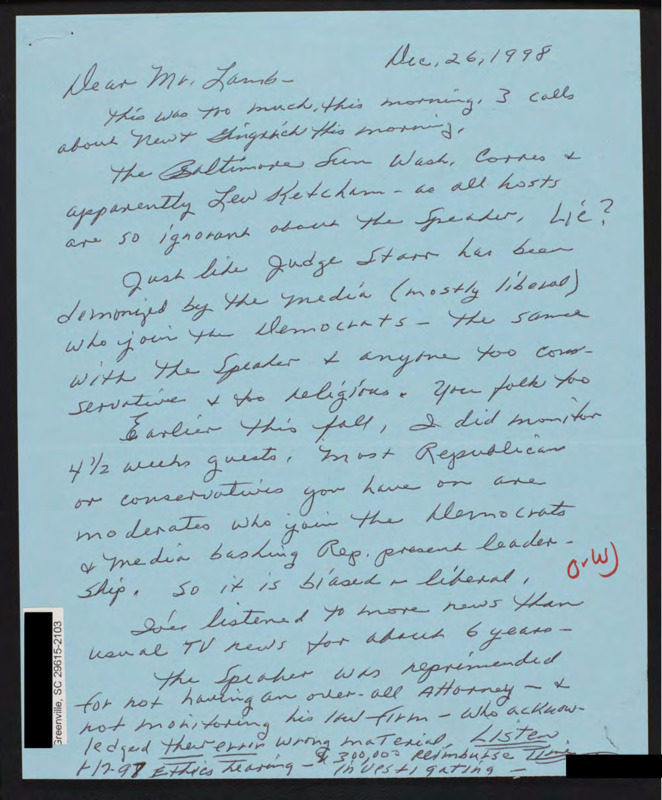 Dec, 26, 1998
Dear Mr. Lamb-
This was too much, this morning. 3 calls
about Newt Gingrich this morning.
The Baltimore Sun Wash. Corres &
apparently Lew Ketcham - as all hosts
are so ignorant about the Speaker. Lie?
Just like Judge Starr has been
demonized by the media (mostly liberal)
who join the Democrats - the same
with the Speaker & anyone too con-
servative & too religious. You folk too
Earlier this fall, I did monitor
4 1/2 weeks guests. Most Republican
or conservatives you have on are
moderates who join the Democrats
& media bashing Rep. present leader-
ship. So it is biased - liberal.
OvW)
I've listened to more news than
usual TV news for about 6 years -
The Speaker was reprimended
for not having an over-all Attorney - &
not monitoring his law firm - who acknow-
ledged their error wrong material, Listen
1-17-97 Ethics hearing - $300,000 Reimburse time
investigating -
Greenville, SC 29615-2103